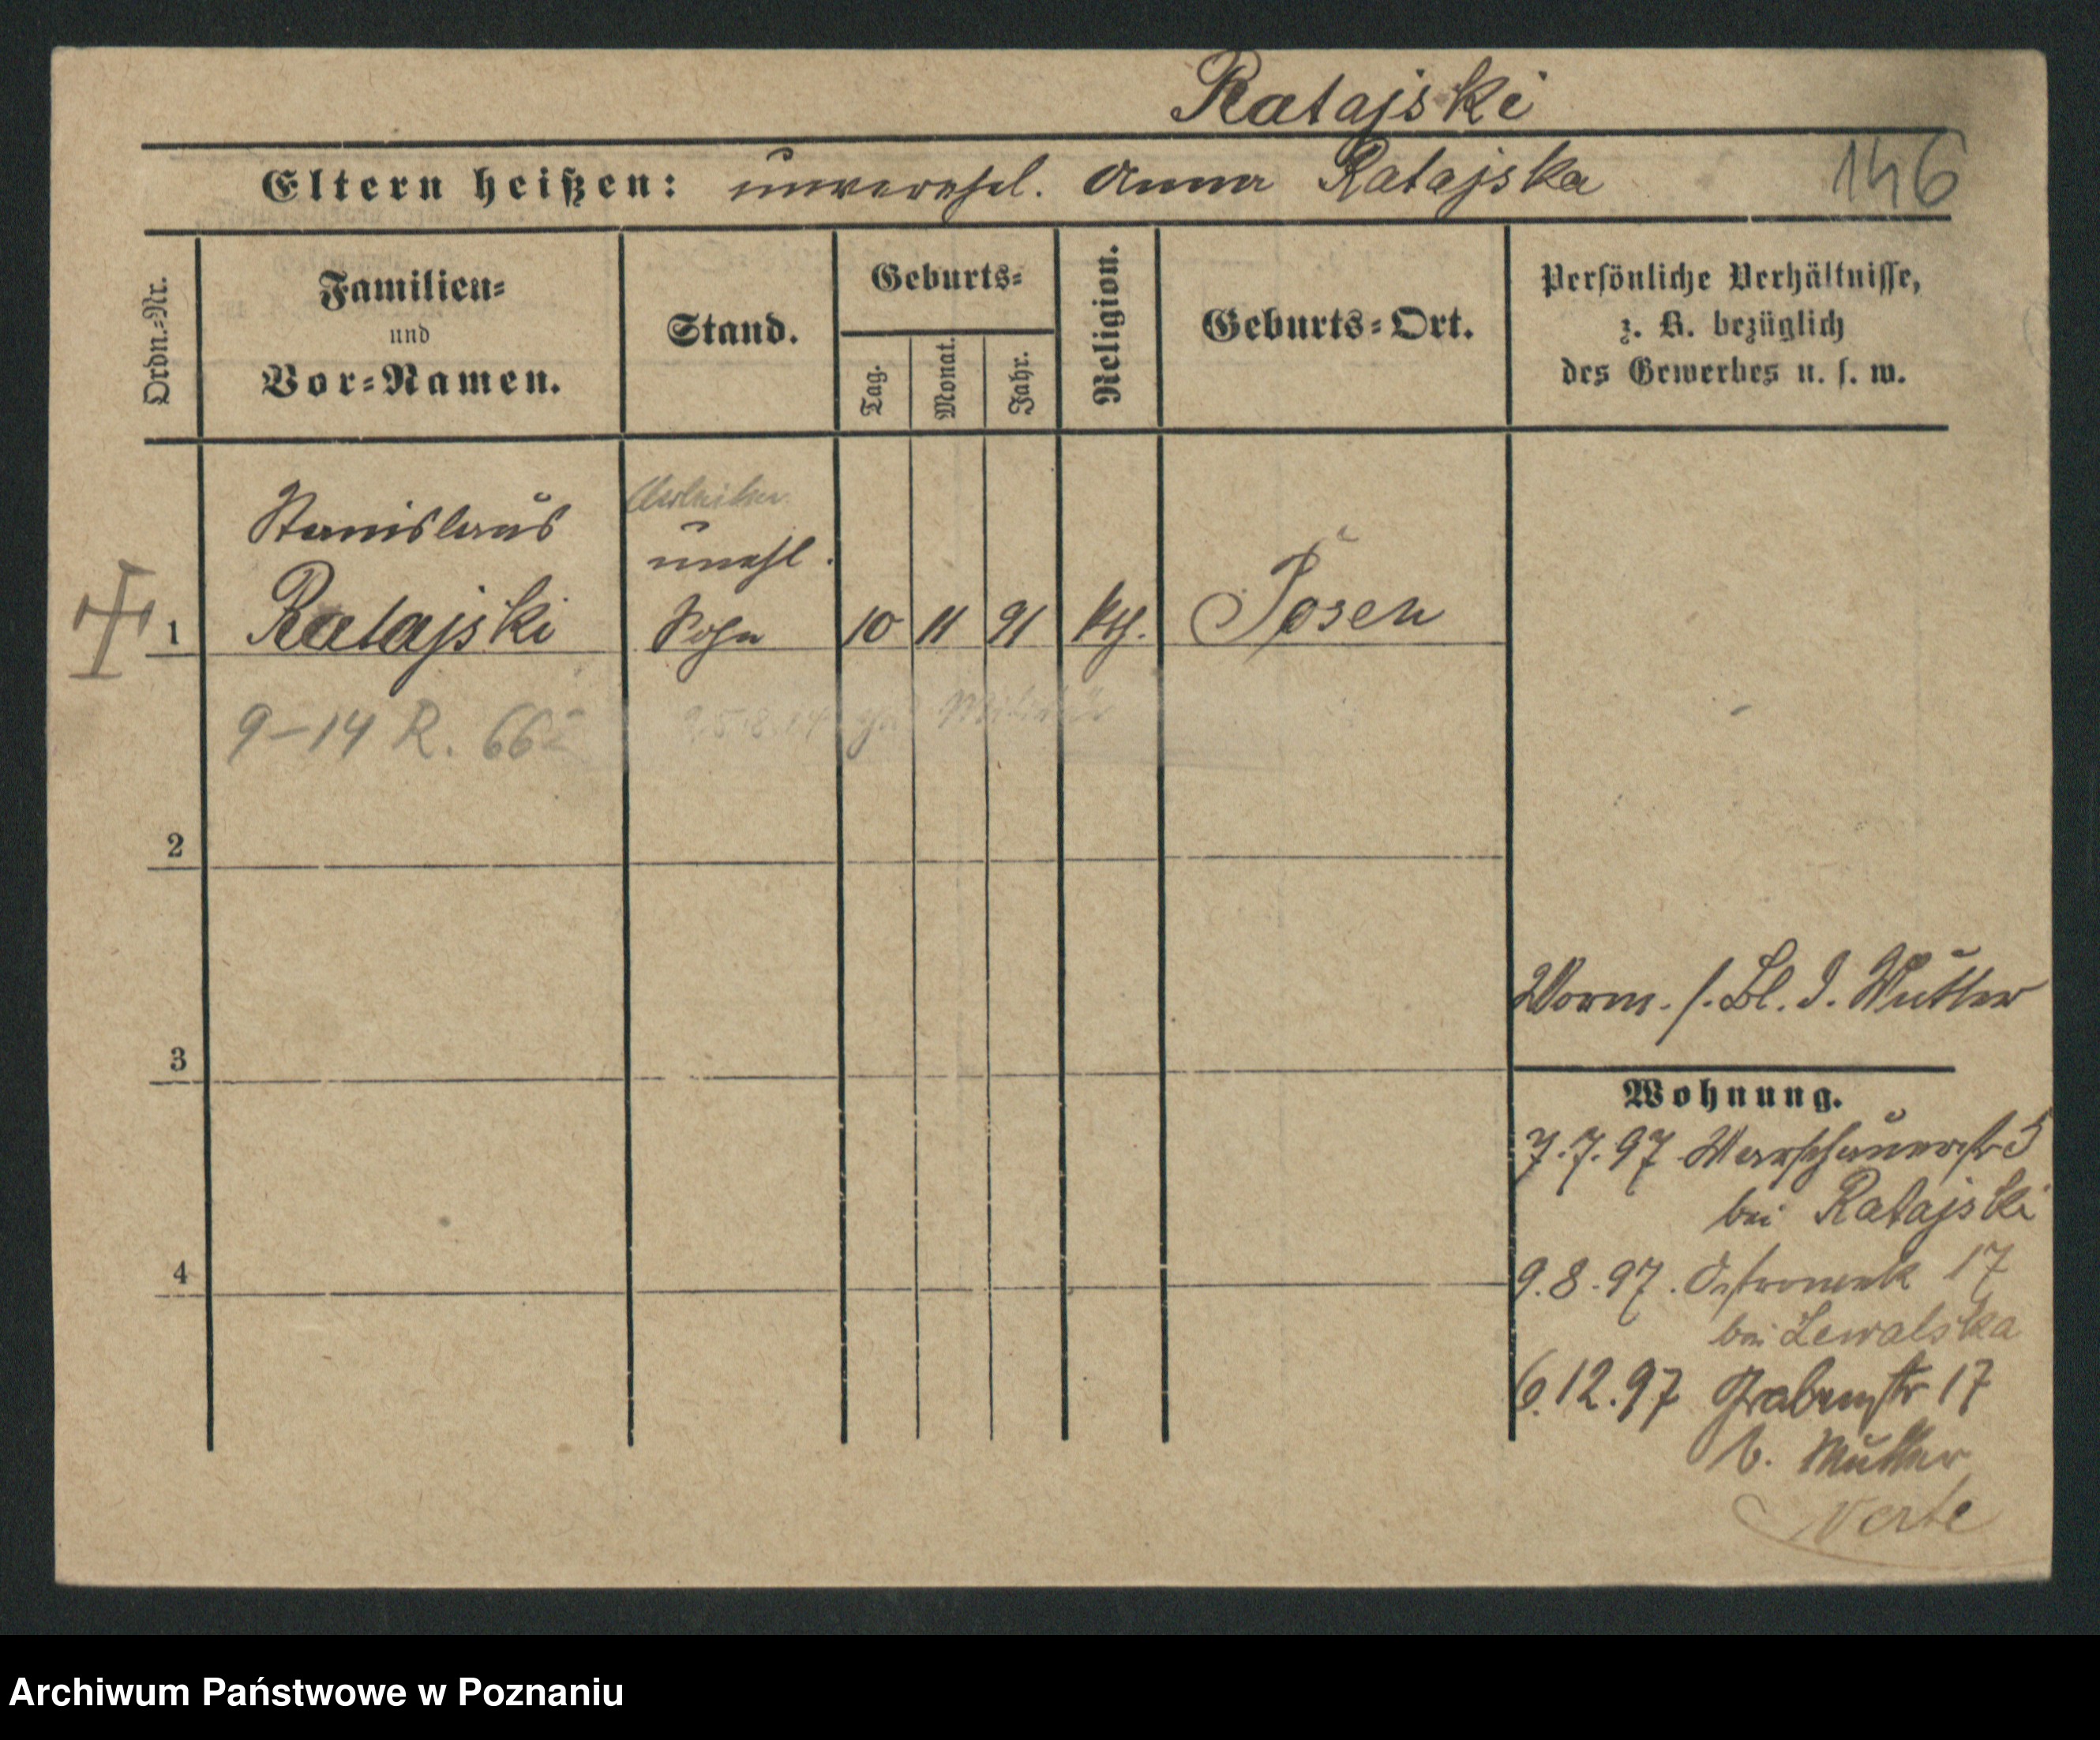 Ratajski
Eltern heißen: unverehel. Anna Ratajska 146
Ordn.-Nr.
Familien-
und
Vor-Namen.
Stand.
Geburts-
Tag.
Monat.
Jahr.
Religion.
Geburts-Ort.
Persönliche Verhältnisse,
z. B. bezüglich
des Gewerbes u. s. w.
Stanislaus
unehl.
1 Ratajski Sohn 10 11 91 kth. Posen
9-14 R. 66
Militär
2
Vorm. s. Bl. d. Mutter
3
Wohnung.
7.7.97 Warschauerstr 5
bei Ratajski
9.8.97. Ostrowek 17
4
bei Lewalska
6.12.97 Grabenstr 17
b. Mutter
verte
Archiwum Państwowe w Poznaniu